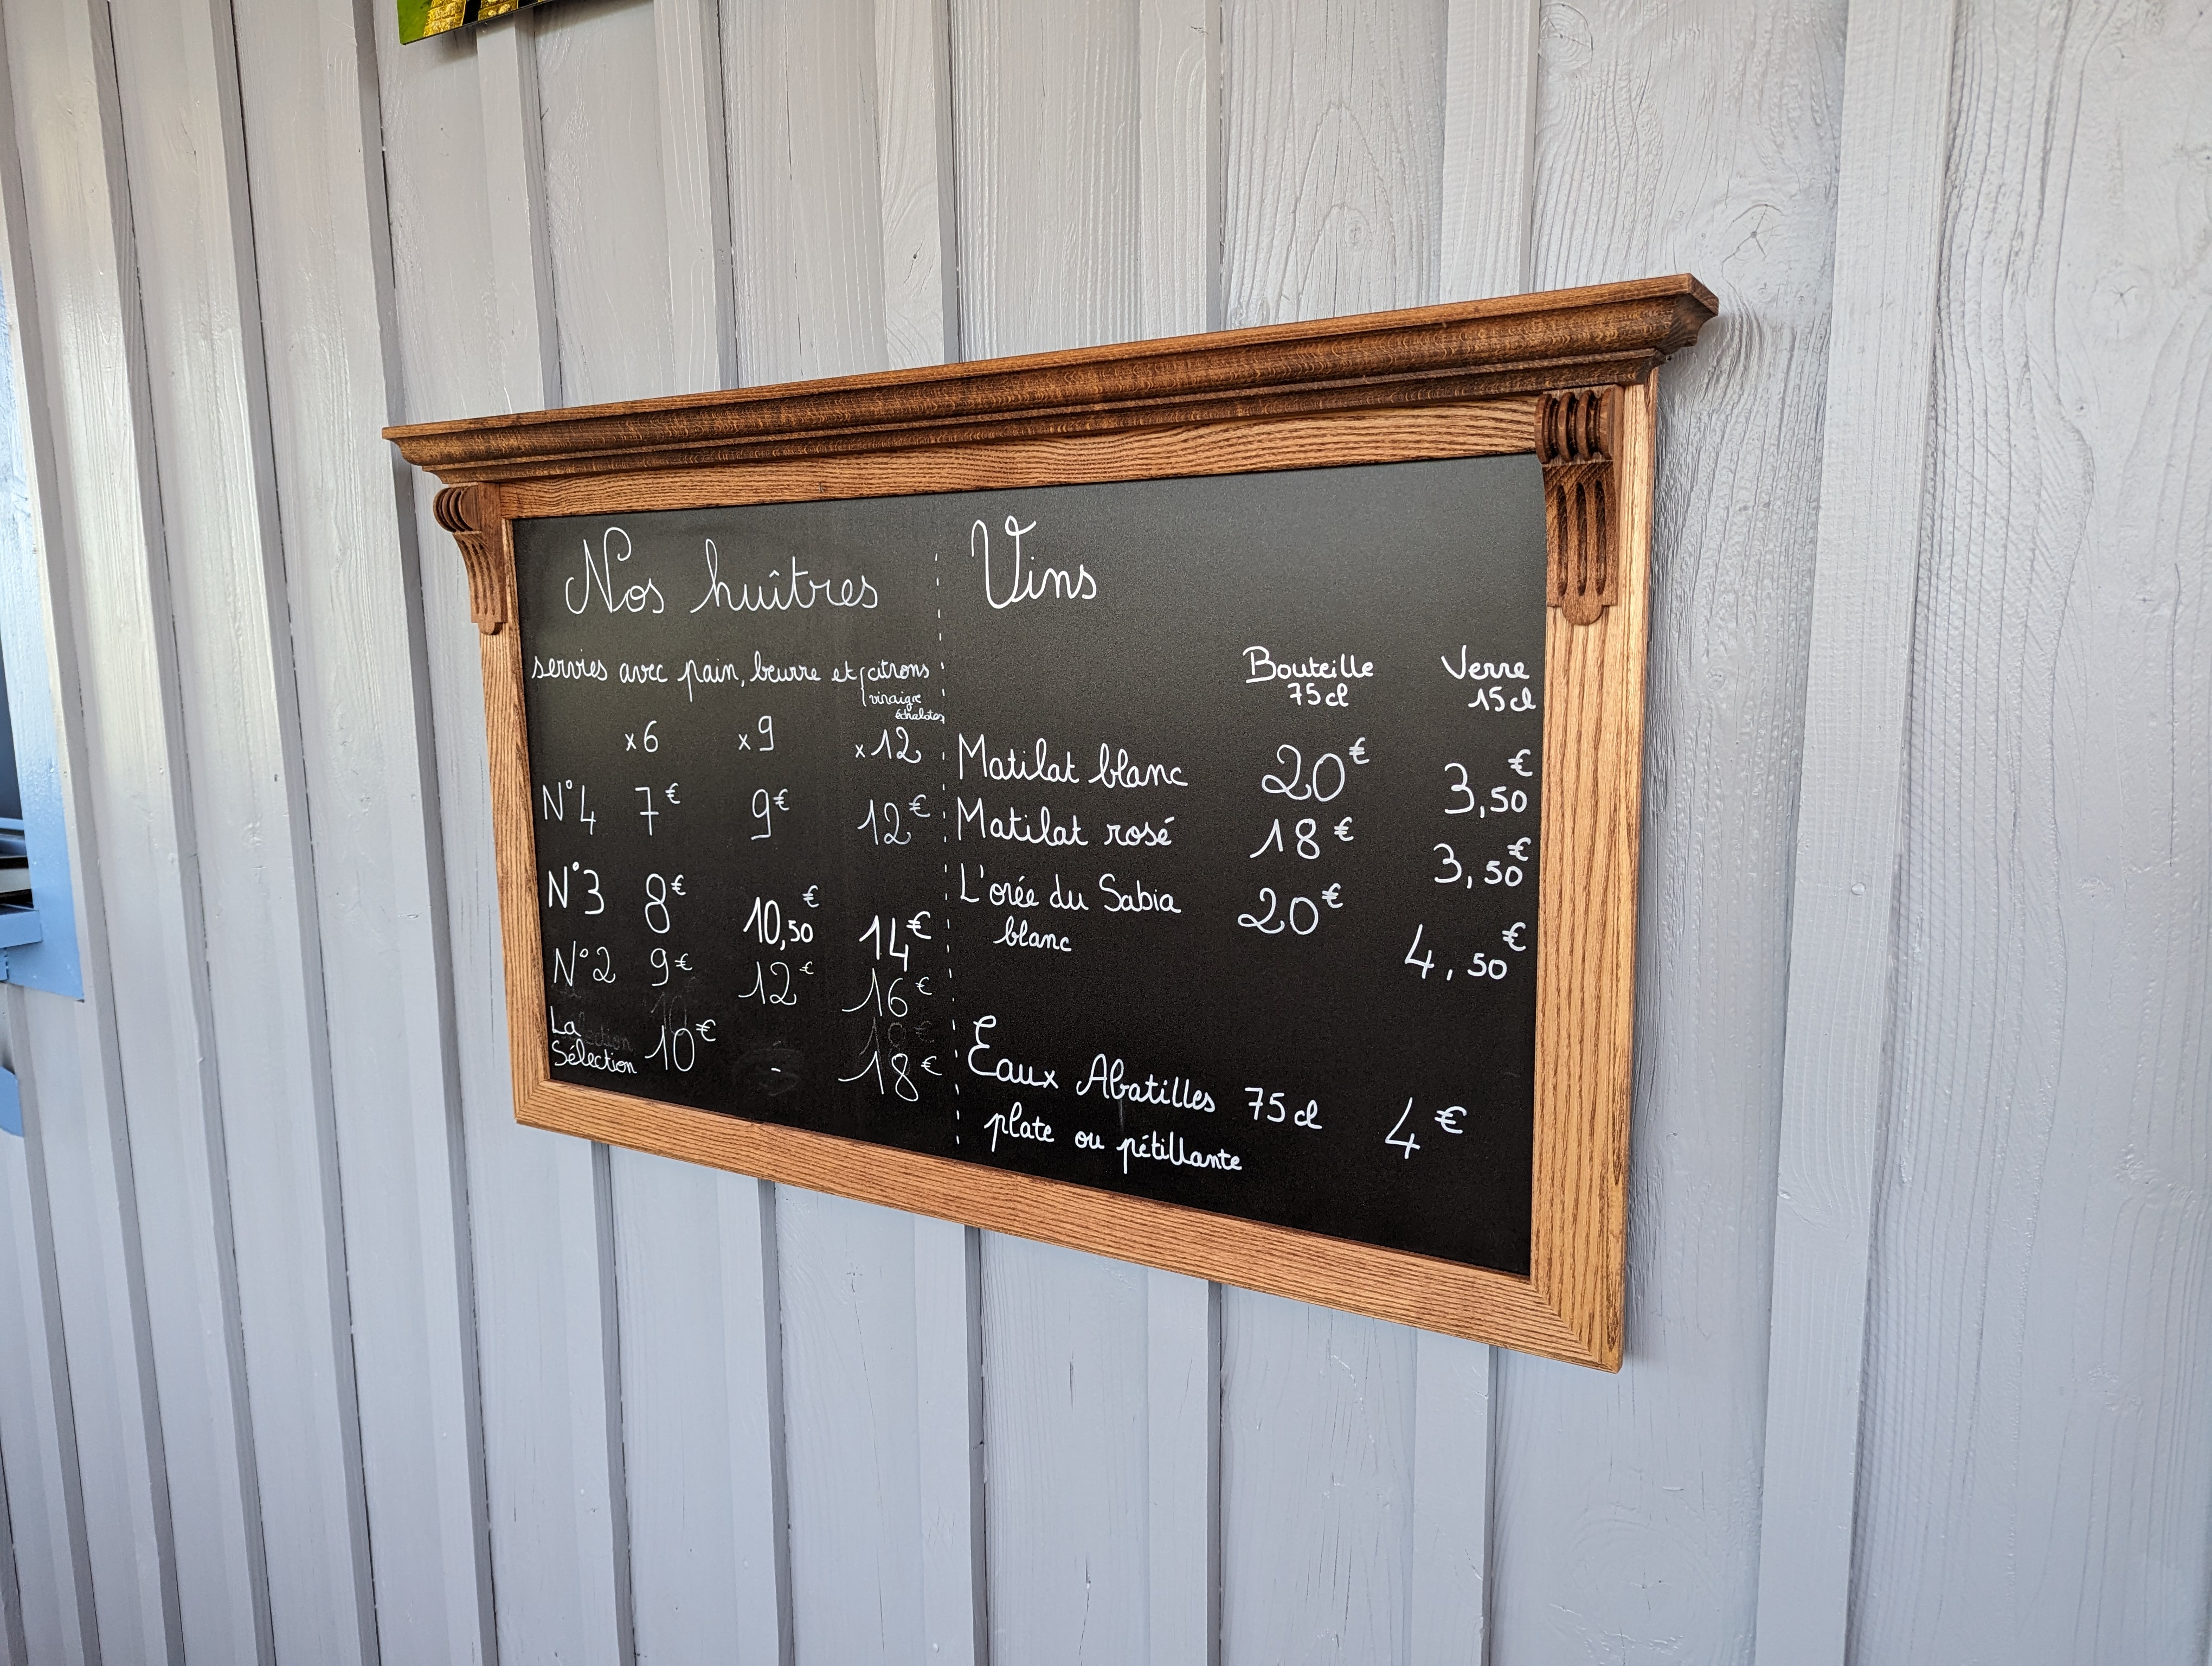 Nos huîtres
servies avec pain, beurre et citrons
vinaigre
échalotes
x6 x9 x12
N°4 7€ 9€ 12€
N°3 8€ 10,50€ 14€
N°2 9€ 12€ 16€
La
Sélection 10€ - 18€
Vins
Bouteille Verre
75cl 15cl
Matilat blanc 20€ 3,50€
Matilat rosé 18€ 3,50€
L'orée du Sabia 20€ 4,50€
blanc
Eaux Abatilles 75cl 4€
plate ou pétillante